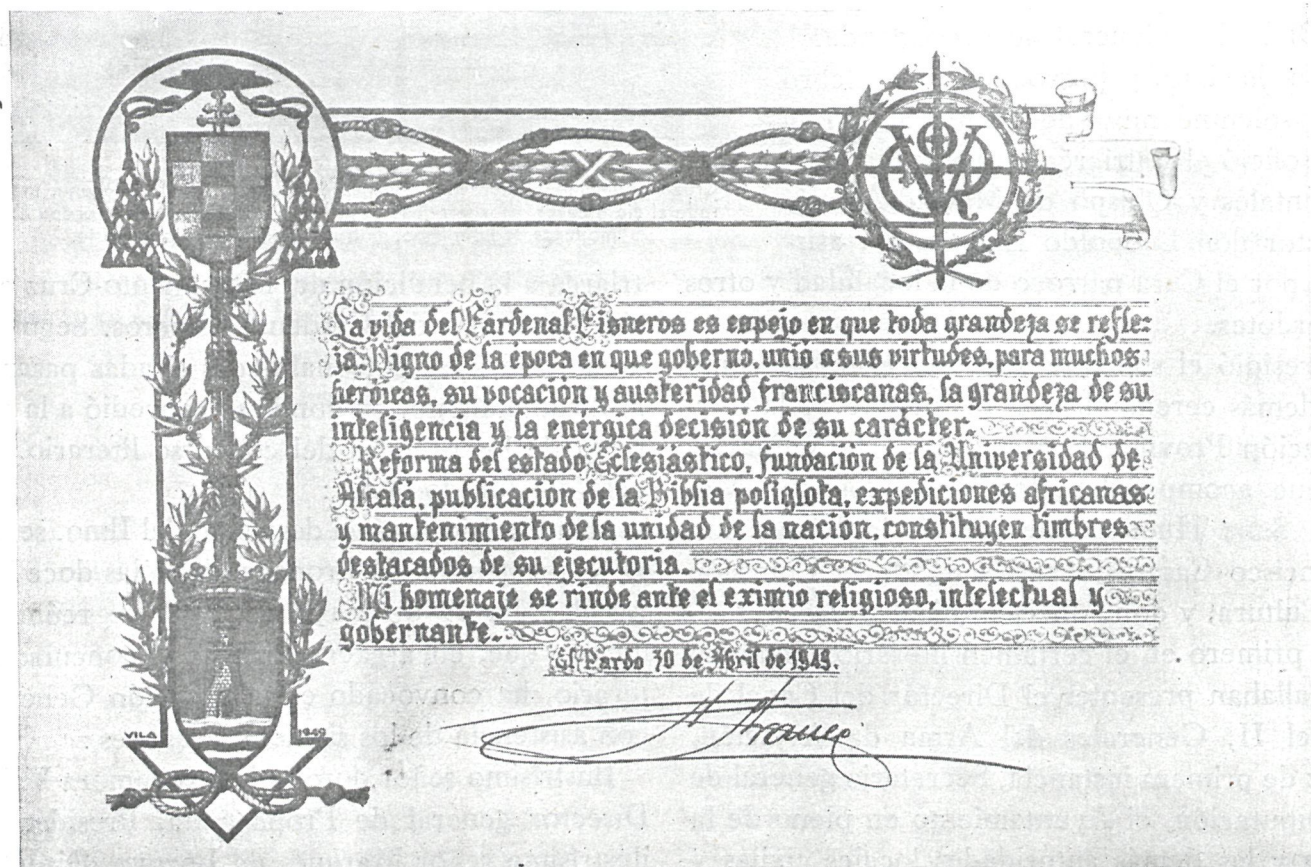 La vida del Cardenal Cisneros es espejo en que toda grandeza se refle-
ja. Digno de la época en que gobernó, unió a sus virtudes, para muchos,
heróicas, su vocación y austeridad franciscanas, la grandeza de su
inteligencia y la enérgica decisión de su carácter.
Reforma del estado Eclesiástico, fundación de la Universidad de
Alcalá, publicación de la Biblia políglota, expediciones africanas
y mantenimiento de la unidad de la nación, constituyen timbres
destacados de su ejecutoria.
Mi homenaje se rinde ante el eximio religioso, intelectual y
gobernante.
El Pardo 20 de Abril de 1949.
F Franco
VILA 1949